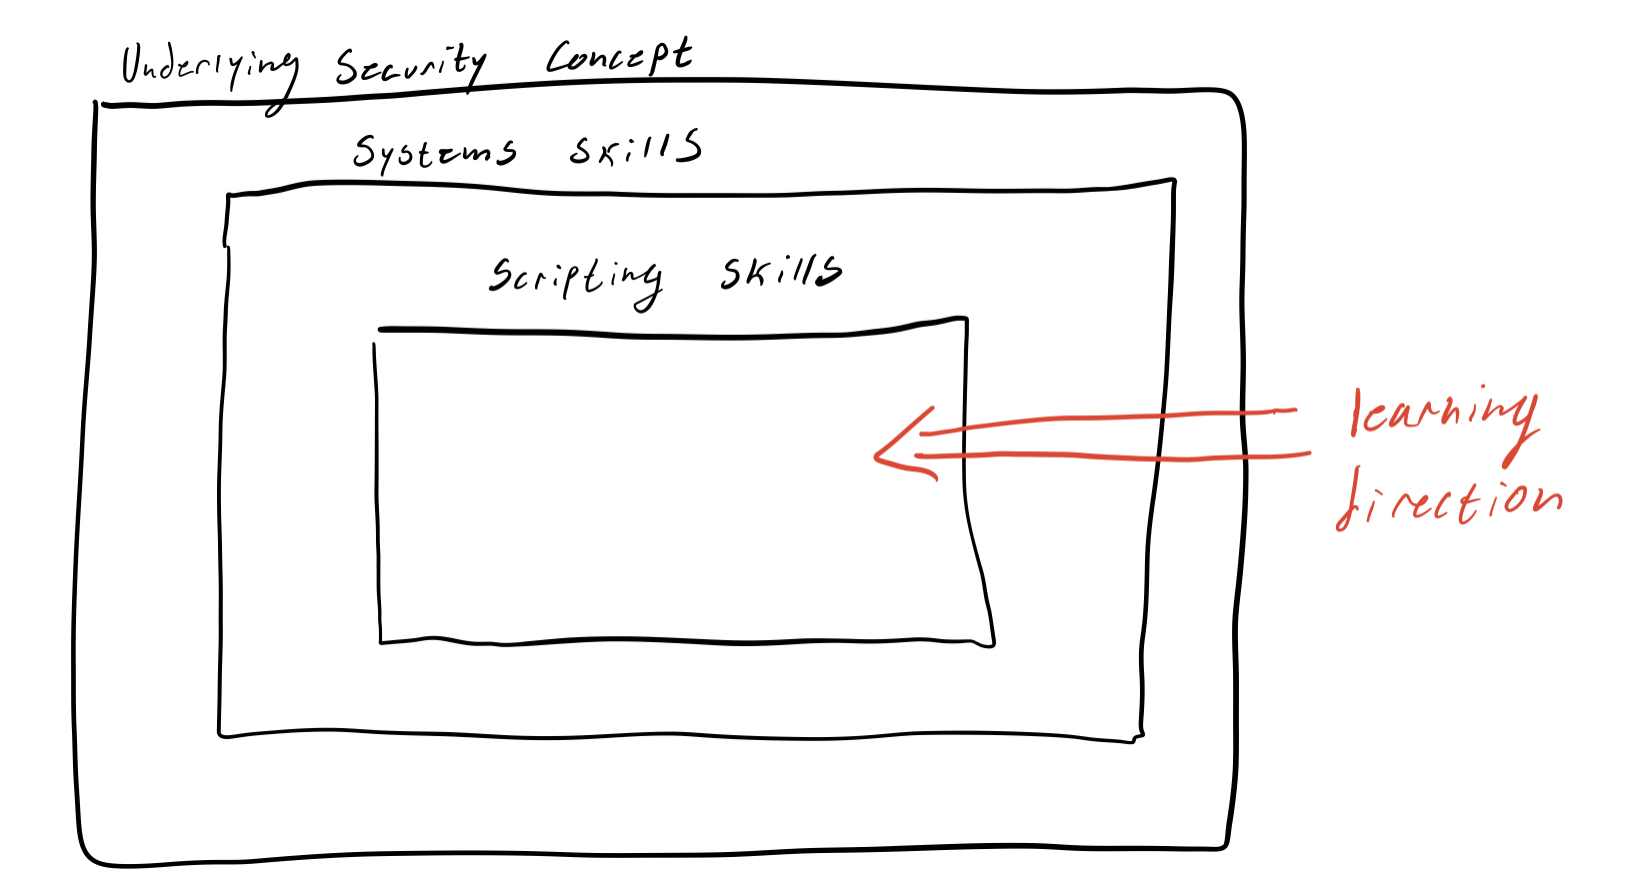 Underlying Security Concept
Systems Skills
Scripting Skills
learning
direction